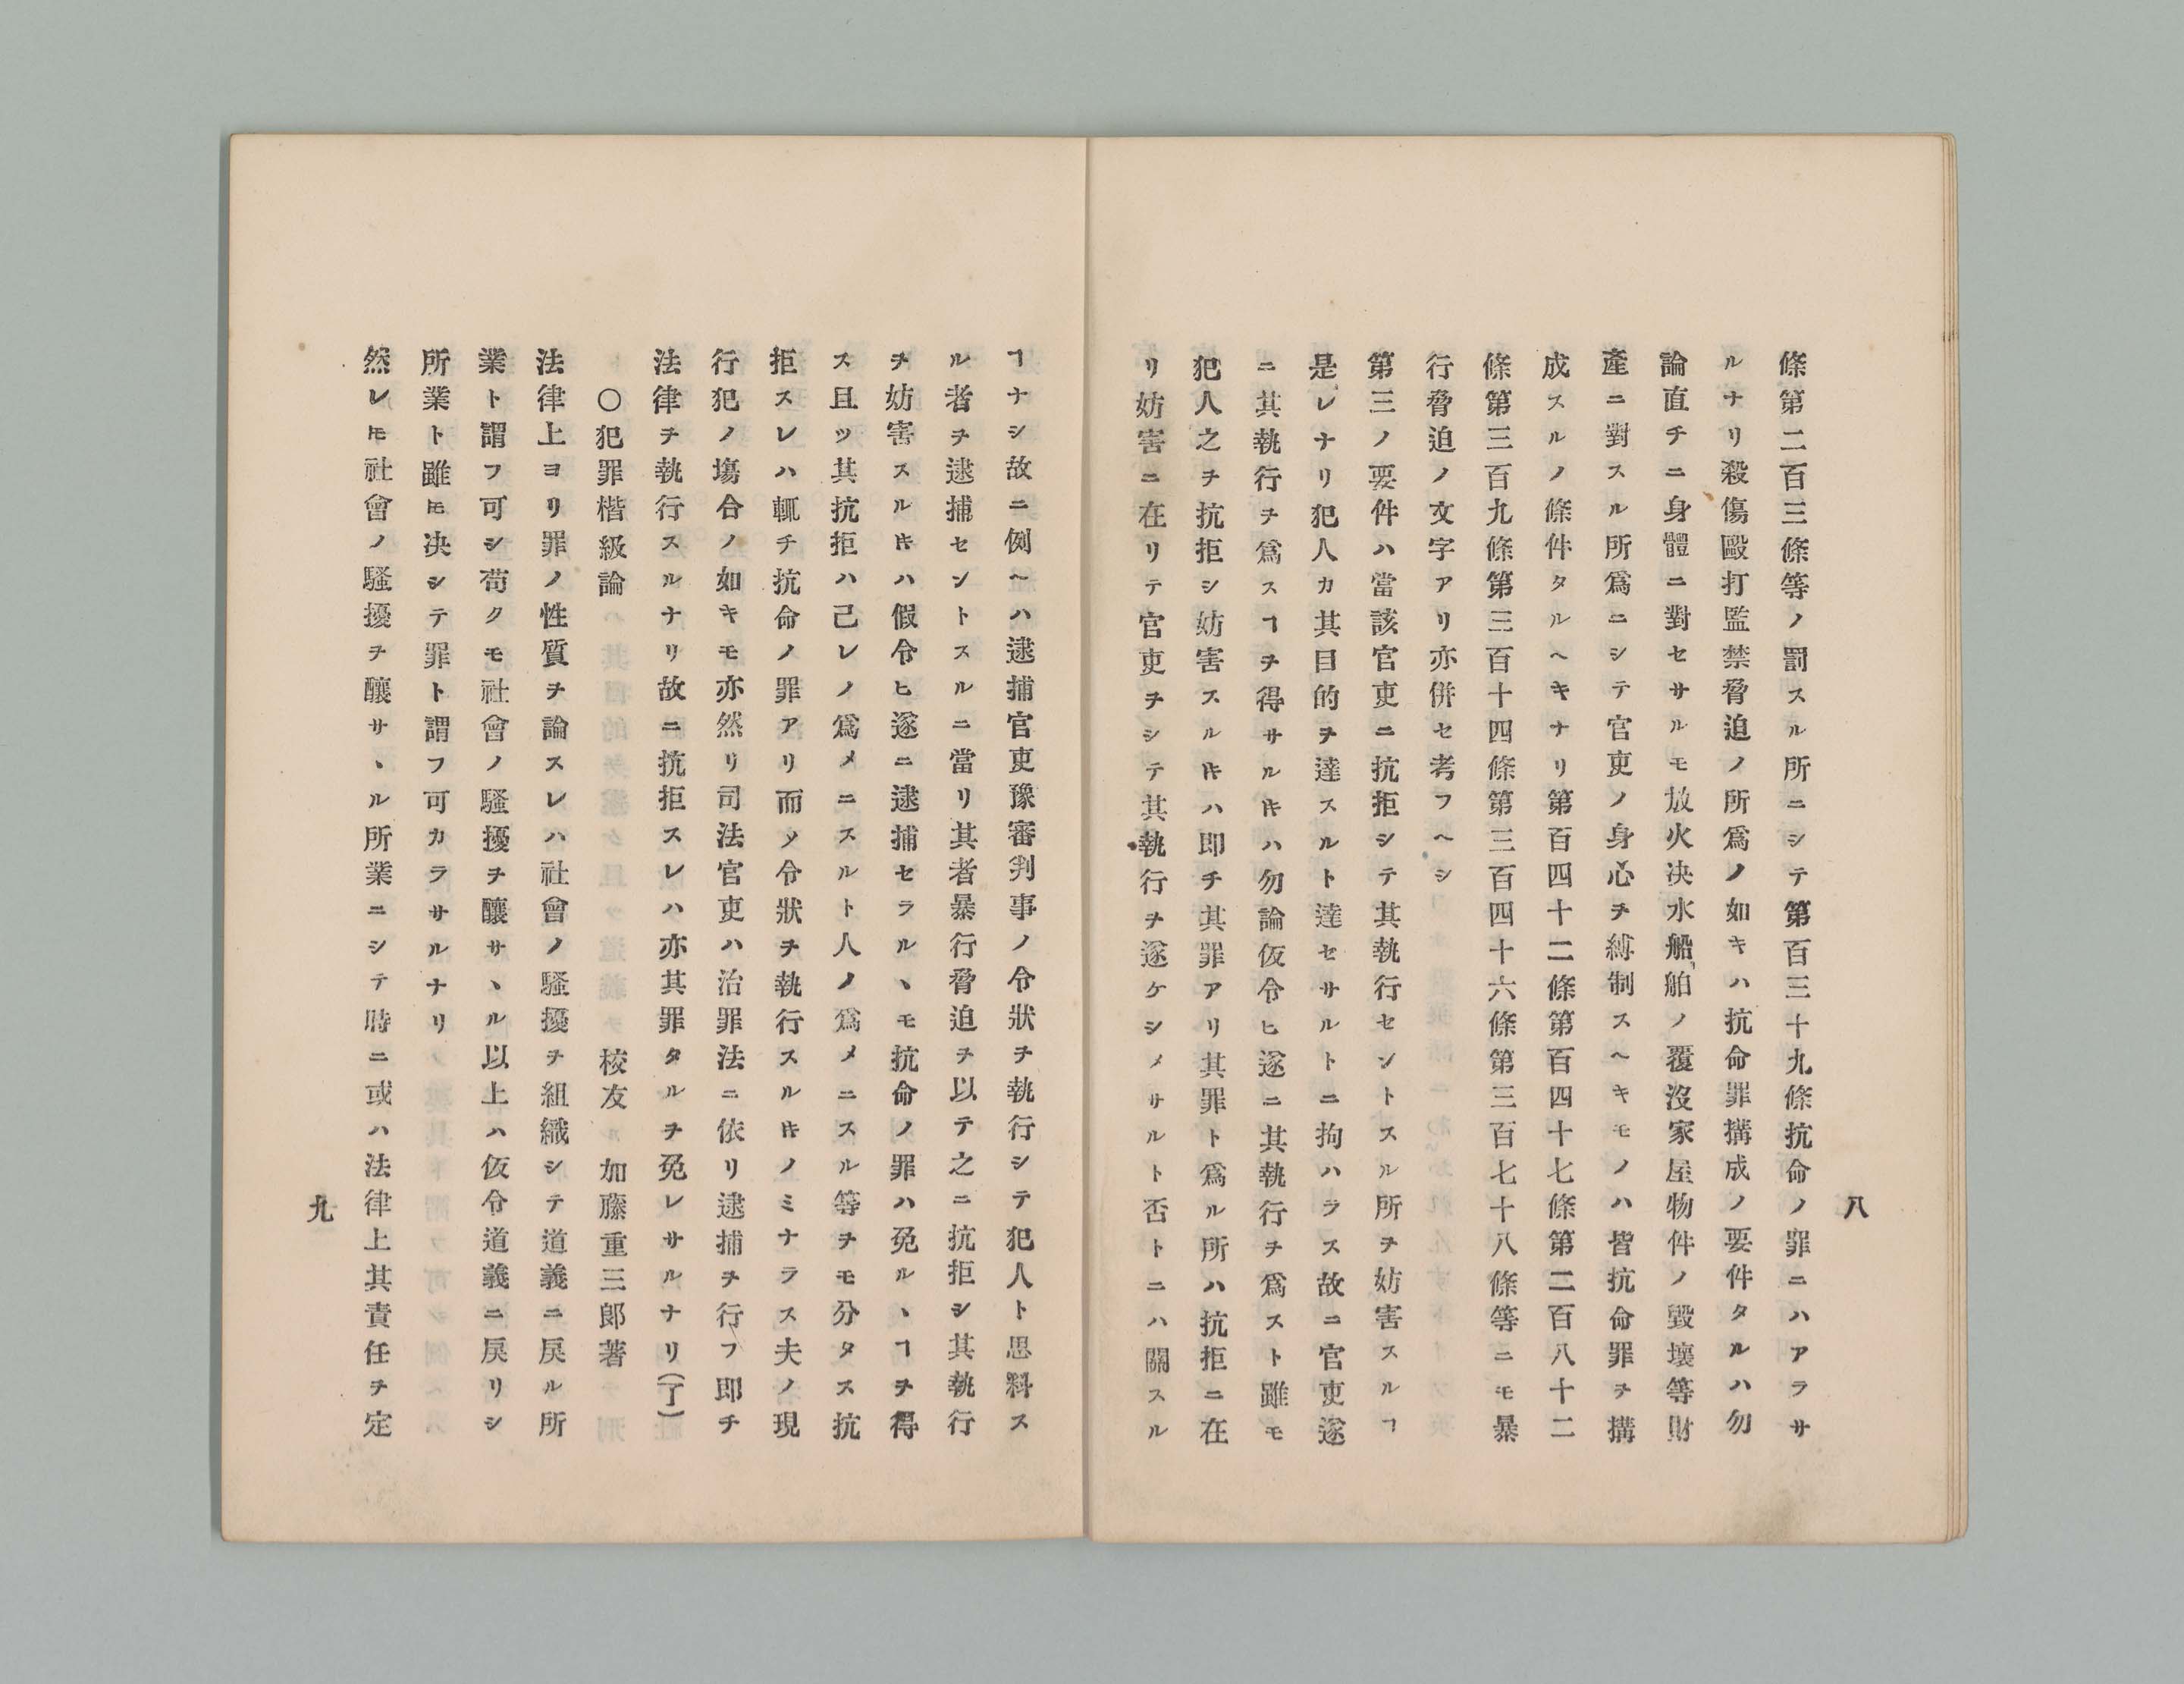 八
條第二百三條等ノ罰スル所ニシテ第百三十九條抗命ノ罪ニハアラサ
ルナリ殺傷毆打監禁脅迫ノ所爲ノ如キハ抗命罪搆成ノ要件タルハ勿
論直チニ身體ニ對セサルモ放火决水船舶ノ覆沒家屋物件ノ毀壞等財
產ニ對スル所爲ニシテ官吏ノ身心ヲ縛制スヘキモノハ皆抗命罪ヲ搆
成スルノ條件タルヘキナリ第百四十二條第百四十七條第二百八十二
條第三百九條第三百十四條第三百四十六條第三百七十八條等ニモ暴
行脅迫ノ文字アリ亦併セ考フヘシ
第三ノ要件ハ當該官吏ニ抗拒シテ其執行セントスル所ヲ妨害スルヿ
是レナリ犯人カ其目的ヲ達スルト達セサルトニ拘ハラス故ニ官吏遂
ニ其執行ヲ爲スヿヲ得サルキハ勿論仮令ヒ遂ニ其執行ヲ爲スト雖モ
犯人之ヲ抗拒シ妨害スルキハ即チ其罪アリ其罪ト爲ル所ハ抗拒ニ在
リ妨害ニ在リテ官吏ヲシテ其執行ヲ遂ケシメサルト否トニハ關スル
ヿナシ故ニ例ヘハ逮捕官吏豫審判事ノ令狀ヲ執行シテ犯人ト思料ス
ル者ヲ逮捕セントスルニ當リ其者暴行脅迫ヲ以テ之ニ抗拒シ其執行
ヲ妨害スルキハ假令ヒ遂ニ逮捕セラルヽモ抗命ノ罪ハ免ルヽヿヲ得
ス且ツ其抗拒ハ己レノ爲メニスルト人ノ爲メニスル等ヲモ分タス抗
拒スレハ輙チ抗命ノ罪アリ而ソ令狀ヲ執行スルキノミナラス夫ノ現
行犯ノ塲合ノ如キモ亦然リ司法官吏ハ治罪法ニ依リ逮捕ヲ行フ即チ
法律ヲ執行スルナリ故ニ抗拒スレハ亦其罪タルヲ免レサルナリ(了)
〇犯罪楷級論　校友　加藤重三郎著
法律上ヨリ罪ノ性質ヲ論スレハ社會ノ騷擾ヲ組織シテ道義ニ戾ル所
業ト謂フ可シ苟クモ社會ノ騷擾ヲ釀サヽル以上ハ仮令道義ニ戾リシ
所業ト雖𪜈决シテ罪ト謂フ可カラサルナリ
然レ𪜈社會ノ騷擾ヲ釀サヽル所業ニシテ時ニ或ハ法律上其責任ヲ定
九